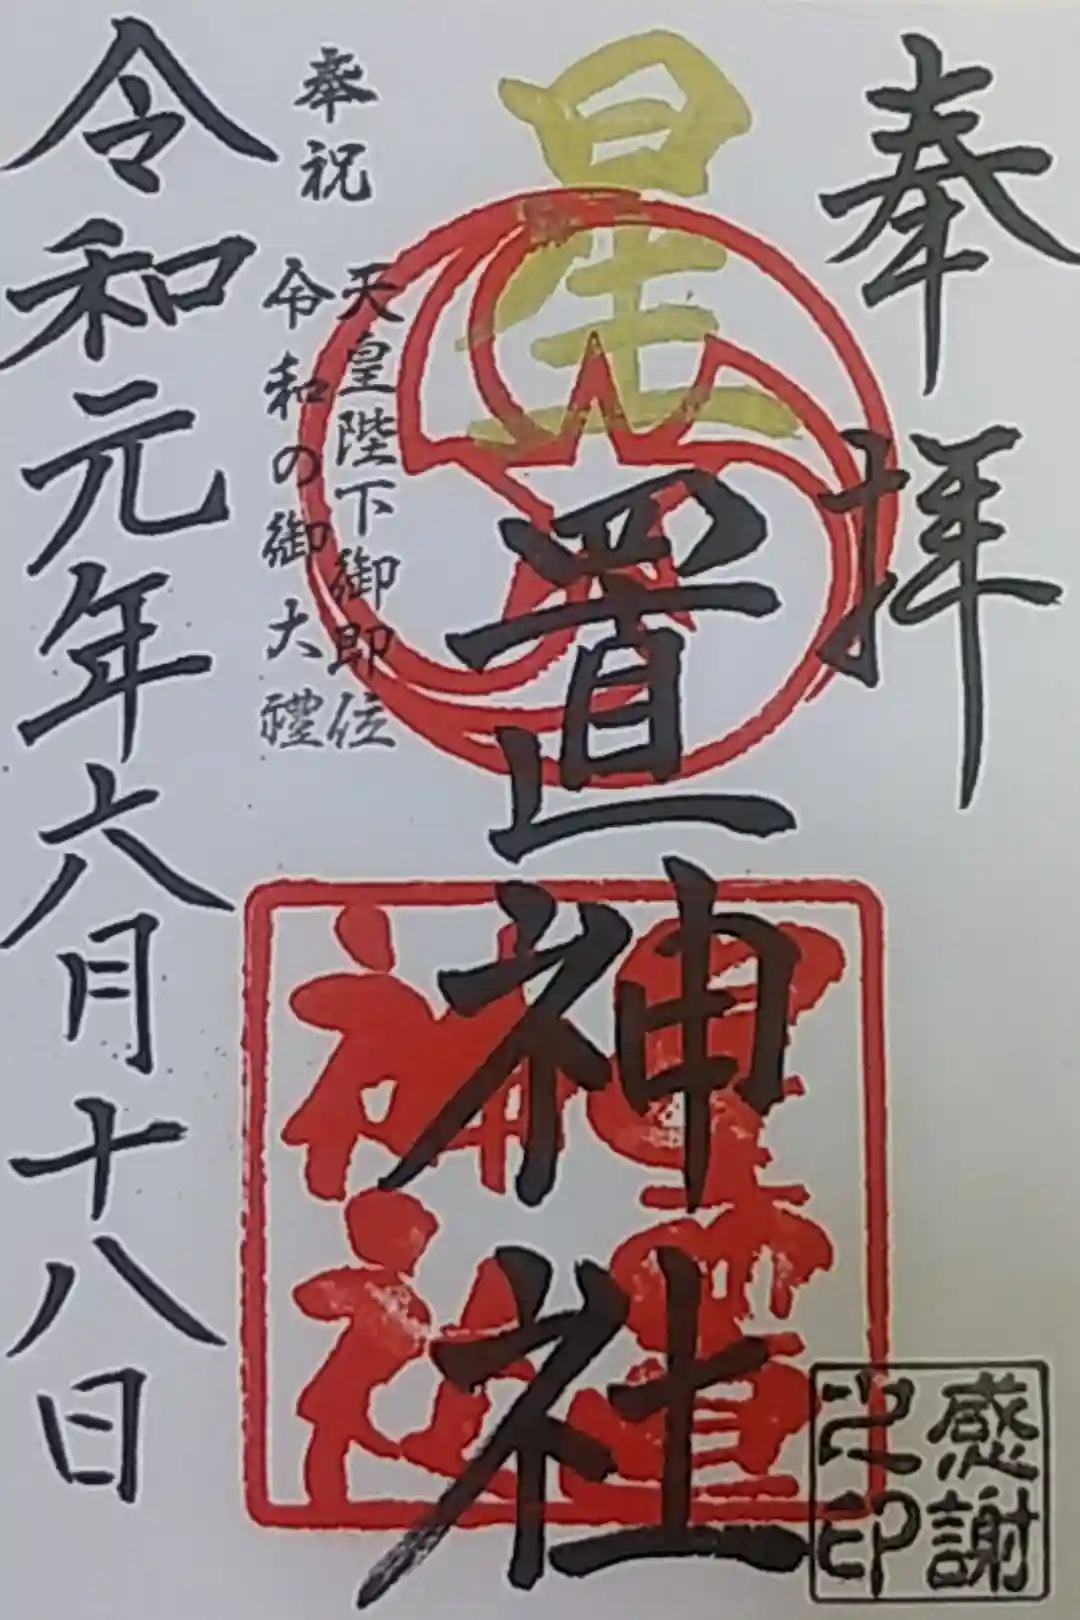 奉拝
星置神社
星置神社
感謝之印
奉祝
天皇陛下御即位
令和の御大禮
令和元年六月十八日